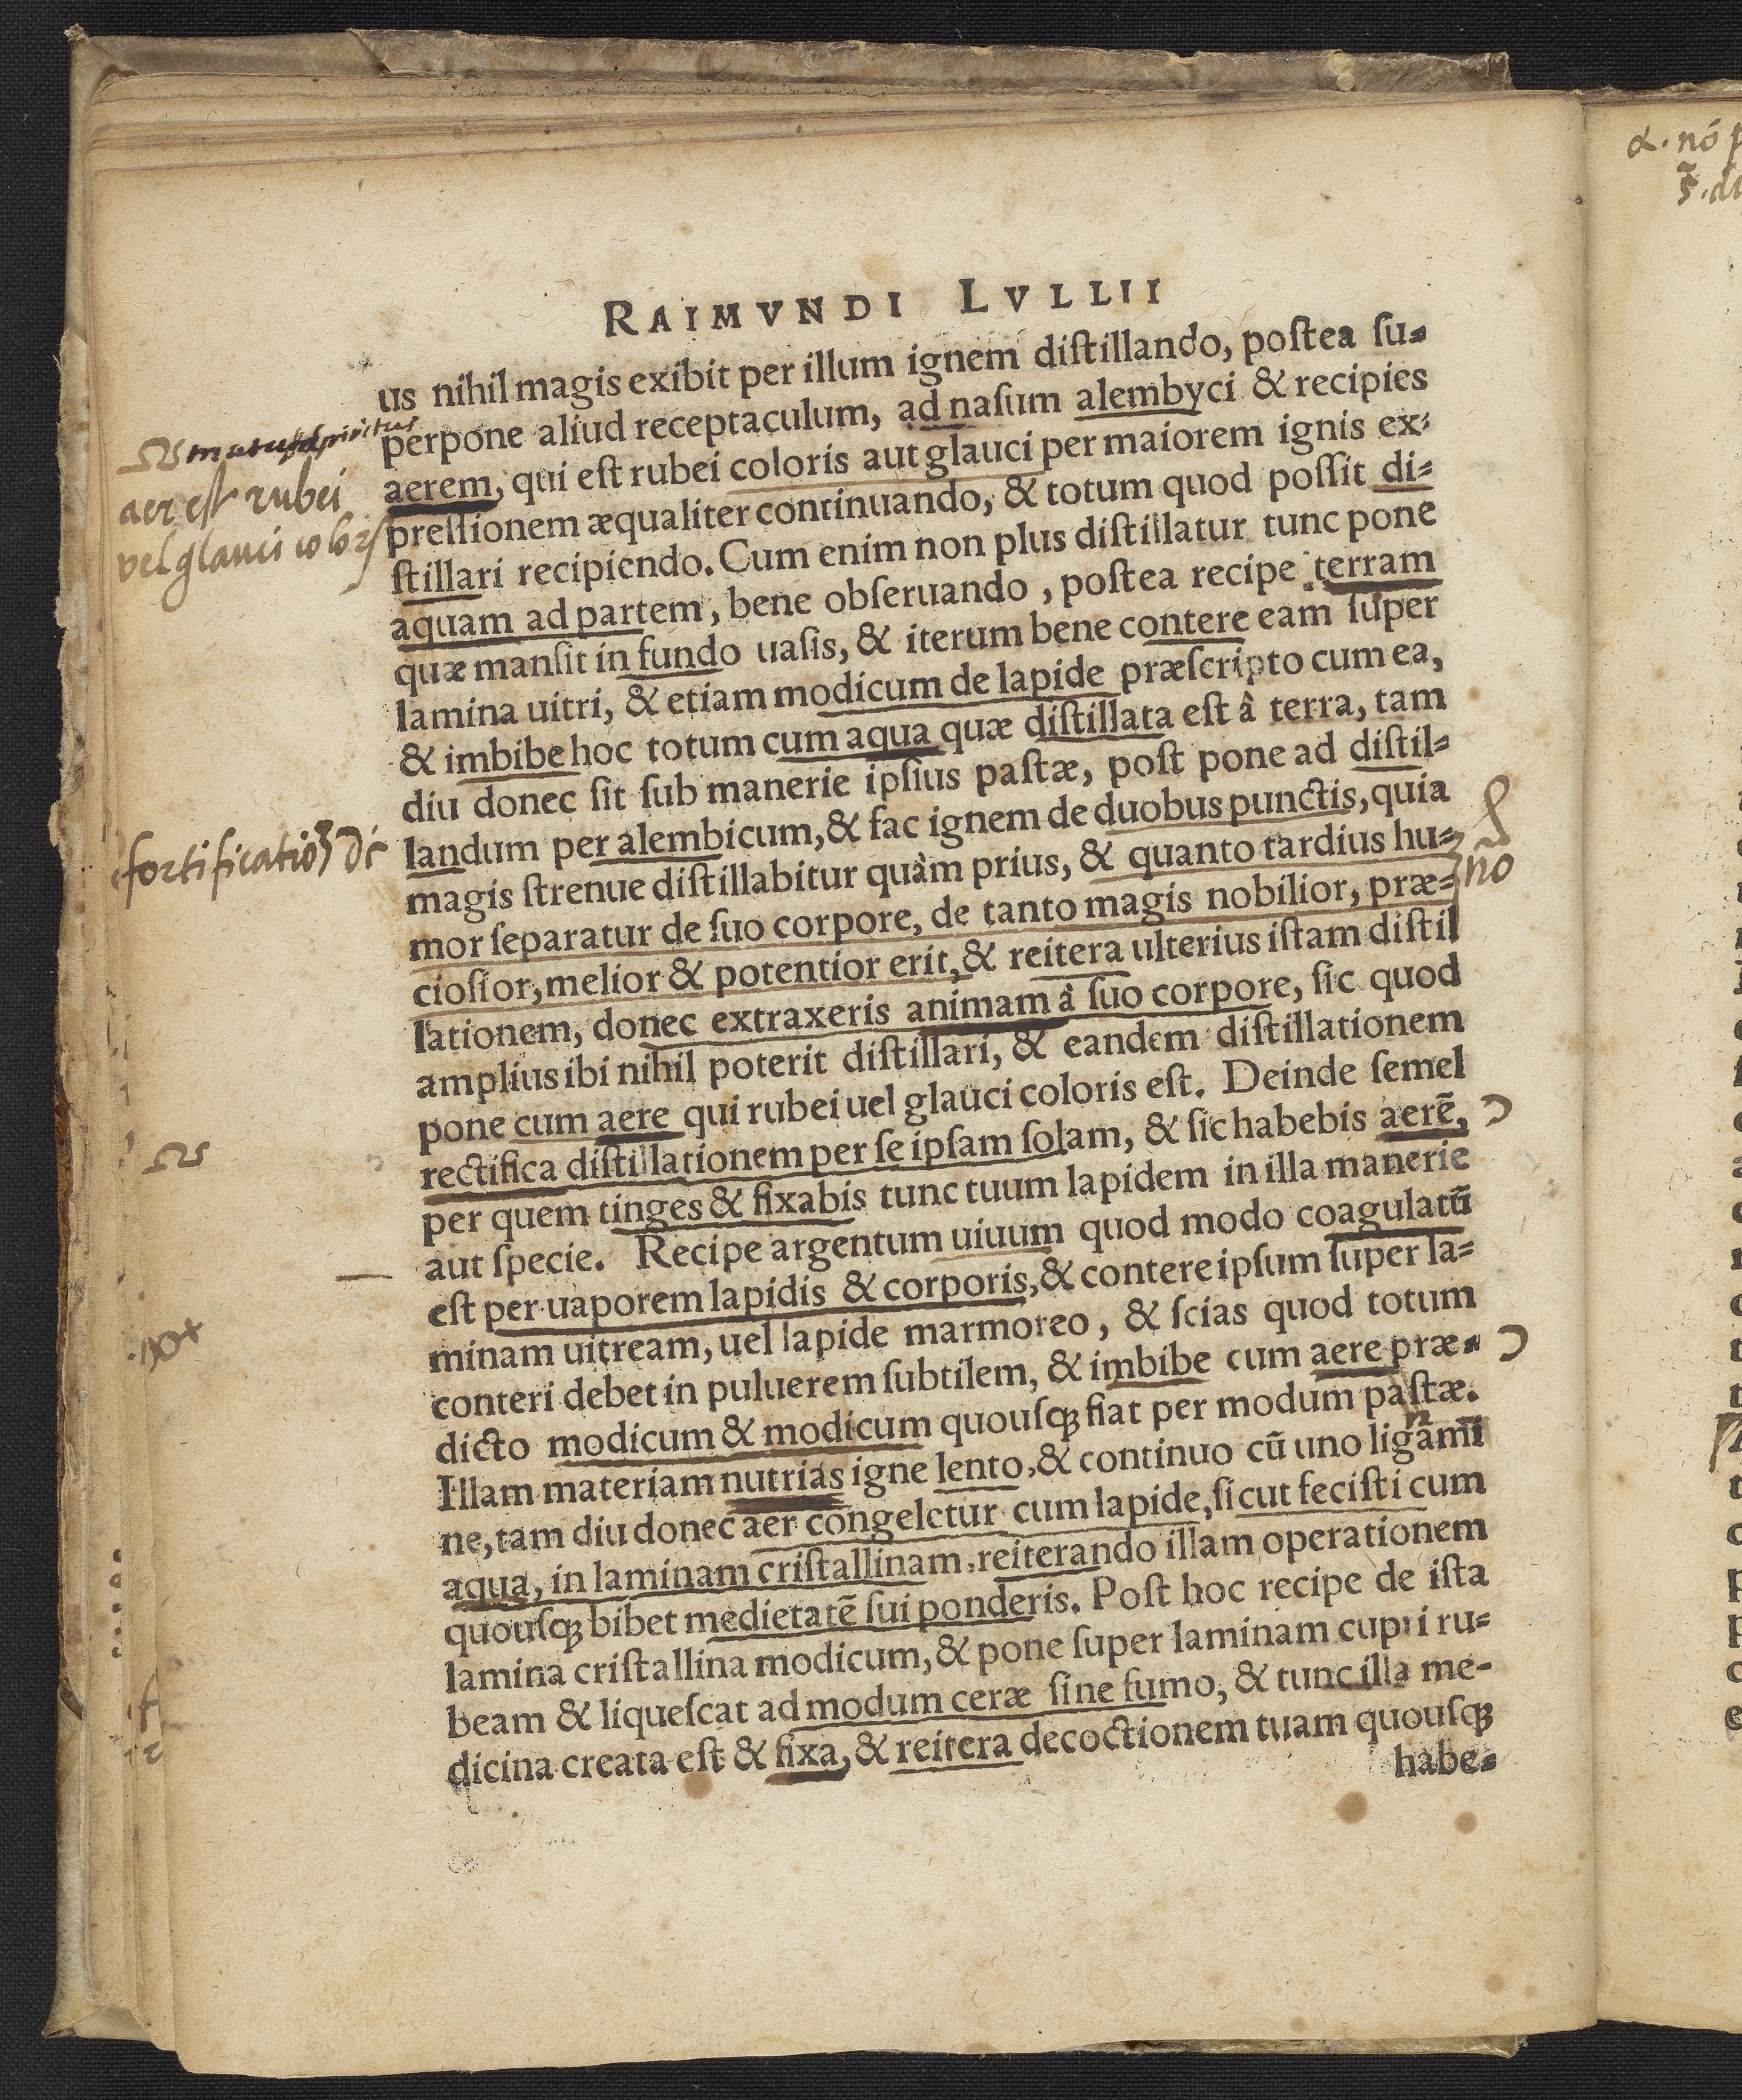 RAIMVNDI LVLLII
us nihil magis exibit per illum ignem diſtillando, poſtea ſu-
perpone aliud receptaculum, ad naſum alembyci & recipies
aerem, qui eſt rubei coloris aut glauci per maiorem ignis ex-
preſſionem æqualiter continuando, & totum quod poſſit di-
ſtillari recipiendo. Cum enim non plus diſtillatur tunc pone
aquam ad partem, bene obſeruando, poſtea recipe terram
quæ manſit in fundo uaſis, & iterum bene contere eam ſuper
lamina uitri, & etiam modicum de lapide præſcripto cum ea,
& imbibe hoc totum cum aqua quæ diſtillata eſt â terra, tam
diu donec ſit ſub manerie ipſius paſtæ, poſt pone ad diſtil-
landum per alembicum, & fac ignem de duobus punctis, quia
magis ſtrenue diſtillabitur quàm prius, & quanto tardius hu-
mor ſeparatur de ſuo corpore, de tanto magis nobilior, præ-
cioſior, melior & potentior erit, & reitera ulterius iſtam diſtil
lationem, donec extraxeris animam à ſuo corpore, ſic quod
amplius ibi nihil poterit diſtillari, & eandem diſtillationem
pone cum aere qui rubei uel glauci coloris eſt. Deinde ſemel
rectifica diſtillationem per ſe ipſam ſolam, & ſic habebis aerē,
per quem tinges & fixabis tunc tuum lapidem in illa manerie
aut ſpecie. Recipe argentum uiuum quod modo coagulatū
eſt per uaporem lapidis & corporis, & contere ipſum ſuper la-
minam uitream, uel lapide marmoreo, & ſcias quod totum
conteri debet in puluerem ſubtilem, & imbibe cum aere præ-
dicto modicum & modicum quouſq; fiat per modum paſtæ.
Illam materiam nutrias igne lento, & continuo cū uno ligami
ne, tam diu donec aer congeletur cum lapide, ſicut feciſti cum
aqua, in laminam criſtallinam, reiterando illam operationem
quouſq; bibet medietatē ſui ponderis. Poſt hoc recipe de iſta
lamina criſtallina modicum, & pone ſuper laminam cupri ru-
beam & liqueſcat ad modum ceræ ſine fumo, & tunc illa me-
dicina creata eſt & fixa, & reitera decoctionem tuam quouſq;
habe-
aer eſt rubei
vel glauci
no